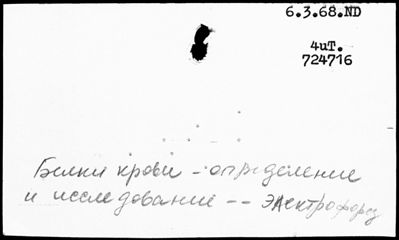 6.3.68.ND
4иТ.
724716
Белки крови - определение
и исследование -- электрофорез